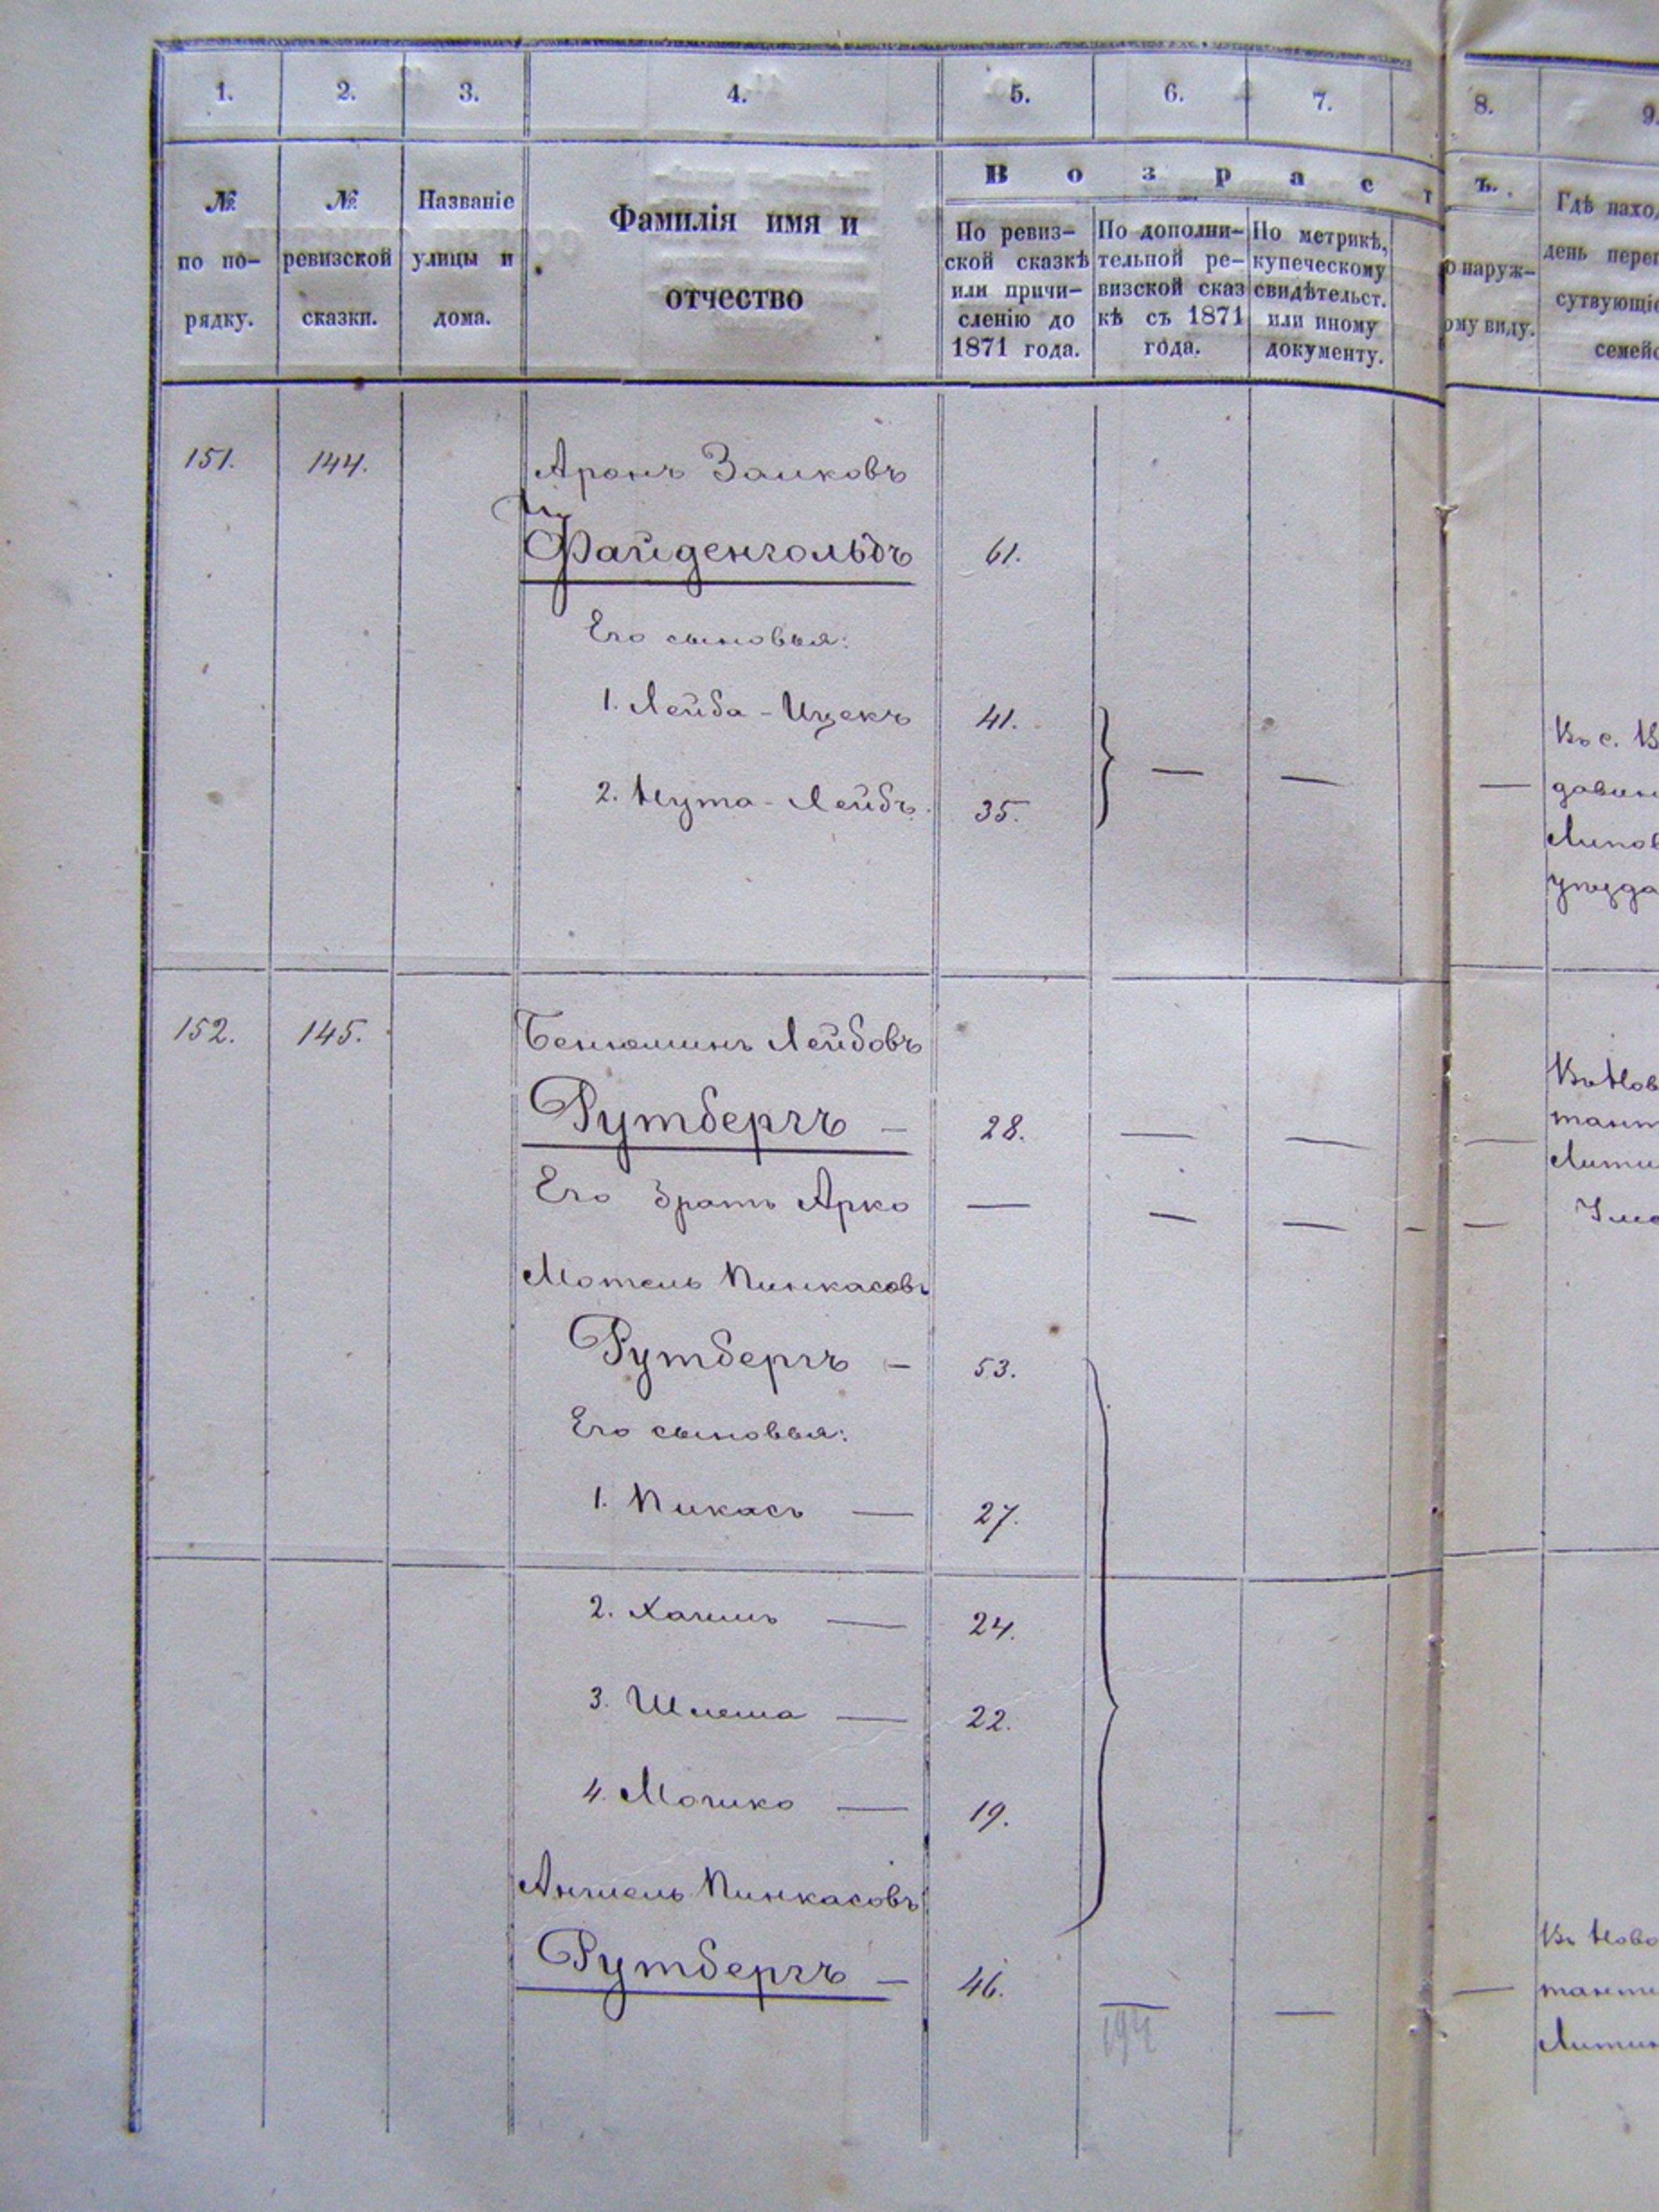 1. 2. 3. 4. 5. 6. 7. 8. 9.
В о з р а с т ъ.
№ по по-рядку.
№ ревизской сказки.
Названіе улицы и дома.
Фамилія имя и отчество
По ревиз-ской сказкѣ или причи-сленію до 1871 года.
По дополни-тельной ре-визской сказ кѣ съ 1871 года.
По метрикѣ, купеческому свидѣтельст. или иному документу.
о наруж-ому виду.
Гдѣ наход
день переп
сутвующіе
семейс
151. 144. Аронъ Заиковъ
Файденгольдъ 61.
Его сыновья:
1. Лейба-Ицекъ 41.
Въ с. В
2. Нута-Лейбъ. 35. — — —
давин
Липов
уѣзда
152. 145. Бенюминъ Лейбовъ
Рутбергъ — 28. — — —
Въ Нов
тант
Литин
Его братъ Арко — — — - —
Мотель Пинкасовъ
Рутбергъ — 53.
Его сыновья:
1. Пикасъ — 27.
2. Хаимъ — 24.
3. Шлема — 22.
4. Мошко — 19.
Анчель Пинкасовъ
Рутбергъ — 46. — — —
Въ Ново
танти
Литин
194